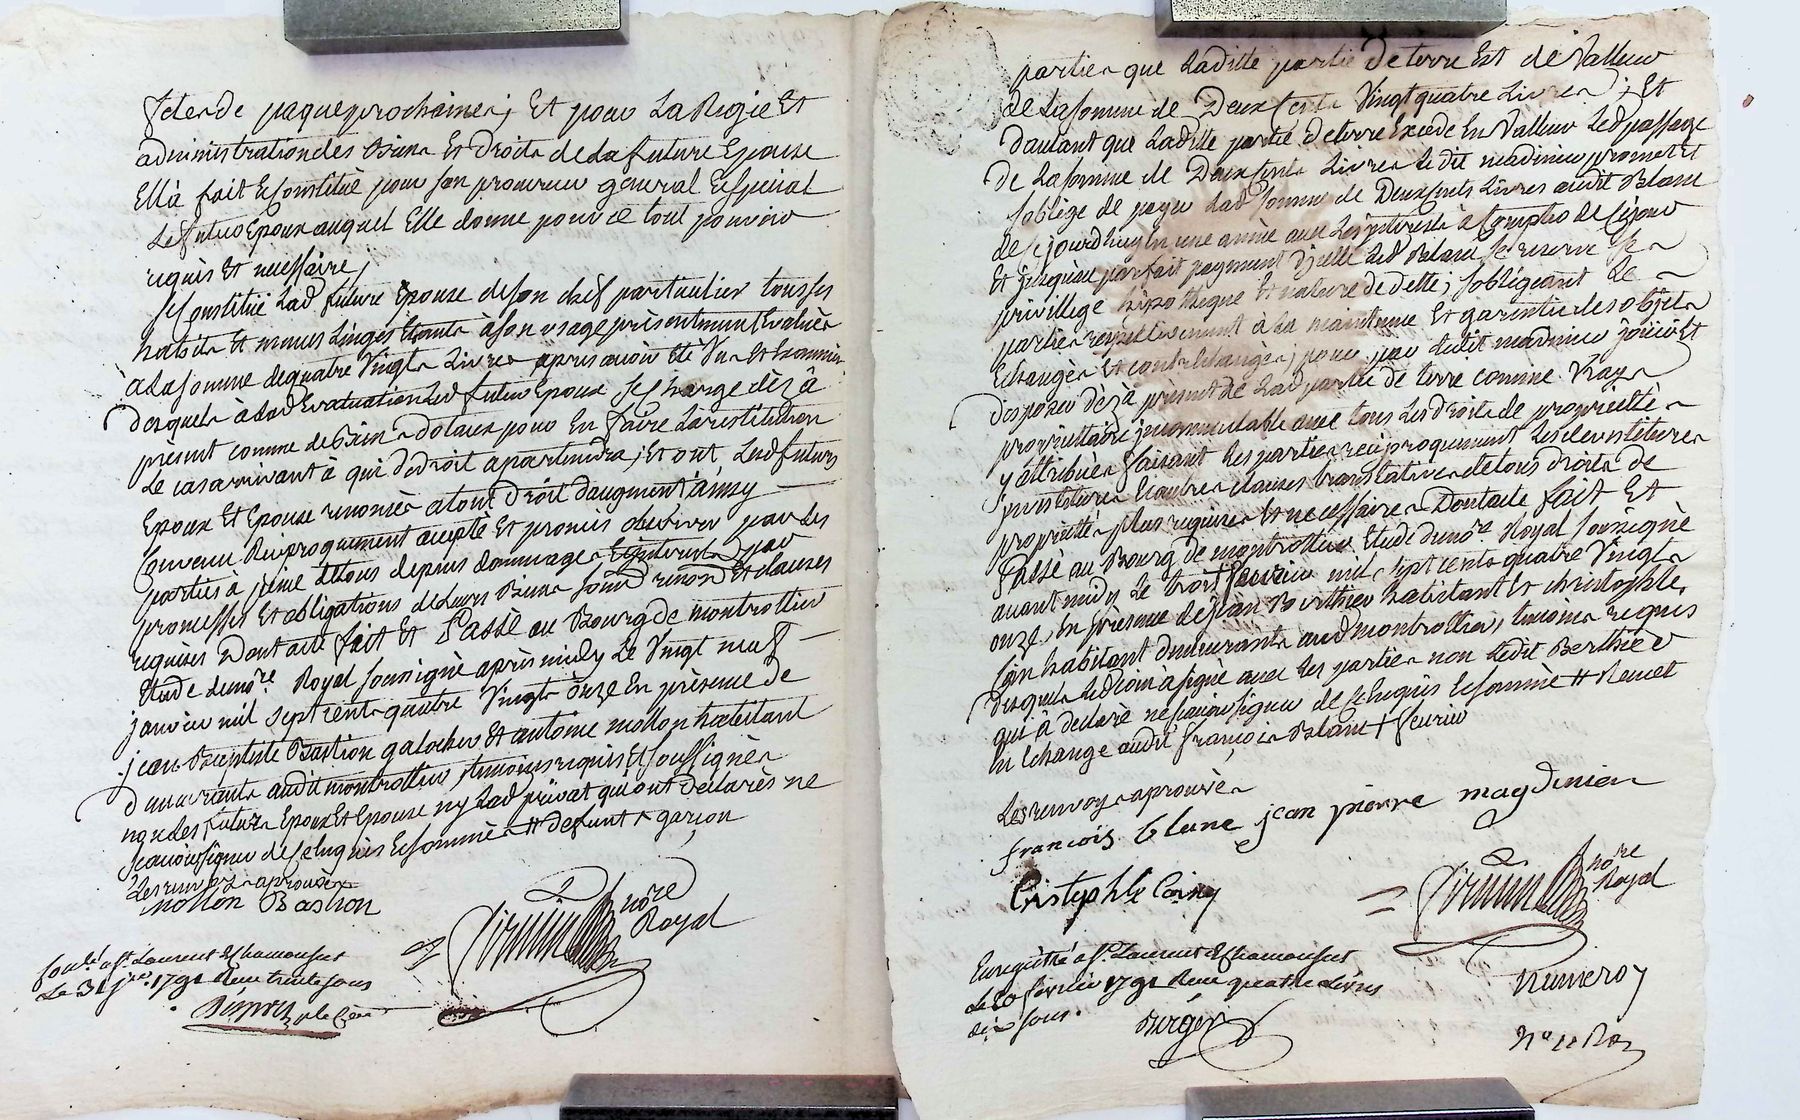 fetes de paques prochaines; Et pour La Regie Et
administration des Biens Et droits de la future Epouse
Ellà fait Et Constitué pour son procureur general Et special
Le futur Epoux auquel Elle donne pour ce tout pouvoir
requis Et necessaire;
se Constitüe Lad future Epouse de son chef particulier tous ses
habits Et menus Linges Etants à son usage présentement Evalués
à La somme de quatre Vingts Livres apres avoir été Vus Et Examinés
desquels à Lad Evaluation Led futur Epoux se charge dès à
present comme de Biens dotaux pour En faire La restitution
Le cas arrivant à qui de droit apartiendra; Et ont Led futurs
Epoux Et Epouse renoncés a tout droit daugment àinsy
Convenu Reciproquement accepté Et promis observer par Les
parties à peine de tous depens dommages Et interests par
promesses Et obligations de Leurs Biens soumd renond Et clauses
requises Dont acte fait Et Passé au Bourg de montrottier
Etude du nore. Royal soussigné après midy Le Vingt neuf
janvier mil sept cents quatre Vingts onze En présence de
jean Baptiste Bastion galocher Et antoine mollon habitant
demeurants audit montrottier, temoins requis Et soussignés
non les futurs Epoux Et Epouse ny Lad privat qui ont déclarés ne
scavoir signer de ce Enquis Et sommés # defunt + garçon
Les renvoys aprouvés
Mollon Bastion
nore
Royal
St Laurent de Chamousset
Le 31 jer. 1791 Reçu trente sous
parties que Ladite partie de terre Est de Valleur
de La somme de Deux cents Vingt quatre Livres; Et
dautant que Ladite partie de terre Excède En Valleur Led passage
de La somme de Deux cents Livres Le dit madinier promet Et
soblige de payer Lad somme de Deux cents Livres audit Blanc
de ce jourdhuy En une année avec Les interests à Compter de Cejour
Et jusquau parfait payment dicelle Led Blanc se reserve Le
privillege hypotheque Et nature de dette; sobligeant Les
parties respectivement à La maintenue Et garentie des objets
Echangés Et contr'échangés; pour par Ledit madinier joüir Et
disposer dez à present de Lad partie de terre comme Vray
proprietaire incommutable avec tous Les droits de proprietté
y attribués faisant Les parties reciproquement Les devestitures
jnvestitures Et autres clauses translatives de tous droits de
proprietté plus requises Et necessaires Dont acte fait Et
Passé au Bourg de montrottier Etude du nore Royal soussigné
avant midy Le trois fevrier mil sept cents quatre Vingts
onze, En présence de jean Berthier habitant Et christophle
habitant demeurants aud montrottier, temoins requis
desquels Led a signé avec Les parties non Ledit Berthier
qui à declaré ne scavoir signer de ce Enquis Et sommé #
En Echange audit françois Blanc + fevrier
Les renvoys aprouvés
françois blanc jean pierre magdinier
Cristophle
nore
Royal
Enregistré a St. Laurent de Chamousset
Le 10 fevrier 1791 Reçu quatre Livres
dix sous.
Numeroy